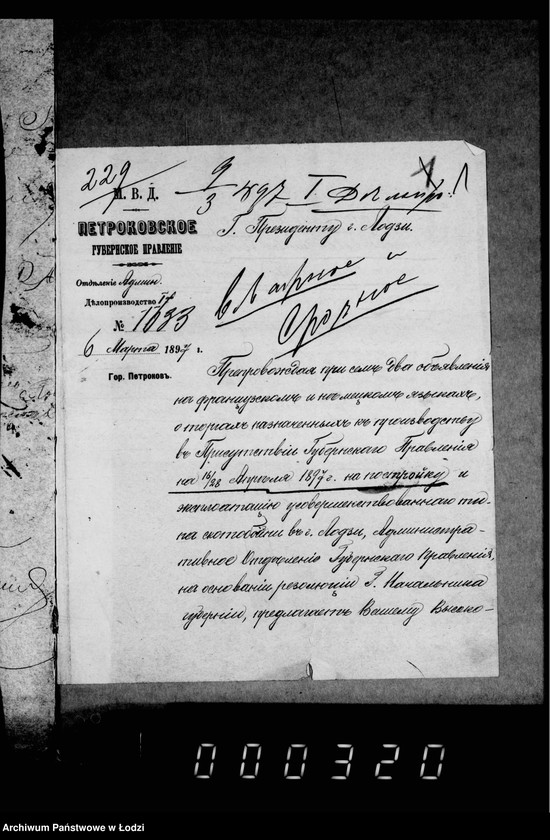 229
9/3 1897 I
М. В. Д.
ПЕТРОКОВСКОЕ
ГУБЕРНСКОЕ ПРАВЛЕНІЕ
Отдѣленіе Админ.
Дѣлопроизводство
№ 1633
6 Марта 1897 г.
Гор. Петроковъ.
Г. Президенту г. Лодзи.
и
Срочное
Препровождая при семъ два объявленія
на французскомъ и нѣмецкомъ языкахъ,
о торгахъ назначенныхъ къ производству
въ Присутствіи Губернскаго Правленія
на 16/28 Апрѣля 1897 г. на постройку и
эксплоатацію усовершенствованнаго ти-
па скотобойни въ г. Лодзи, Администра-
тивное Отдѣленіе Губернскаго Правленія,
на основаніи резолюціи Г. Начальника
губерніи, предлагаетъ Вашему Высоко-
000320
Archiwum Państwowe w Łodzi